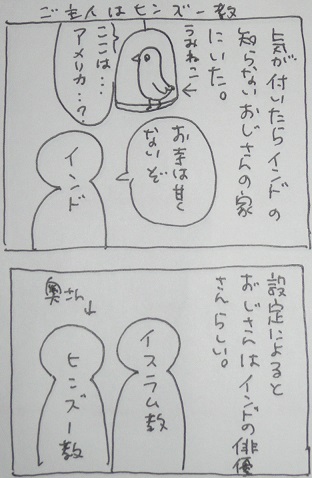 ご主人はヒンズー教
気が付いたらインドの
知らないおじさんの家
にいた。
うみねこ
ここは…
アメリカ…?
お寺は甘く
ないぞ
インド
設定によると
おじさんはインドの俳優
さんらしい。
イスラム教
奥さん
ヒンズー教